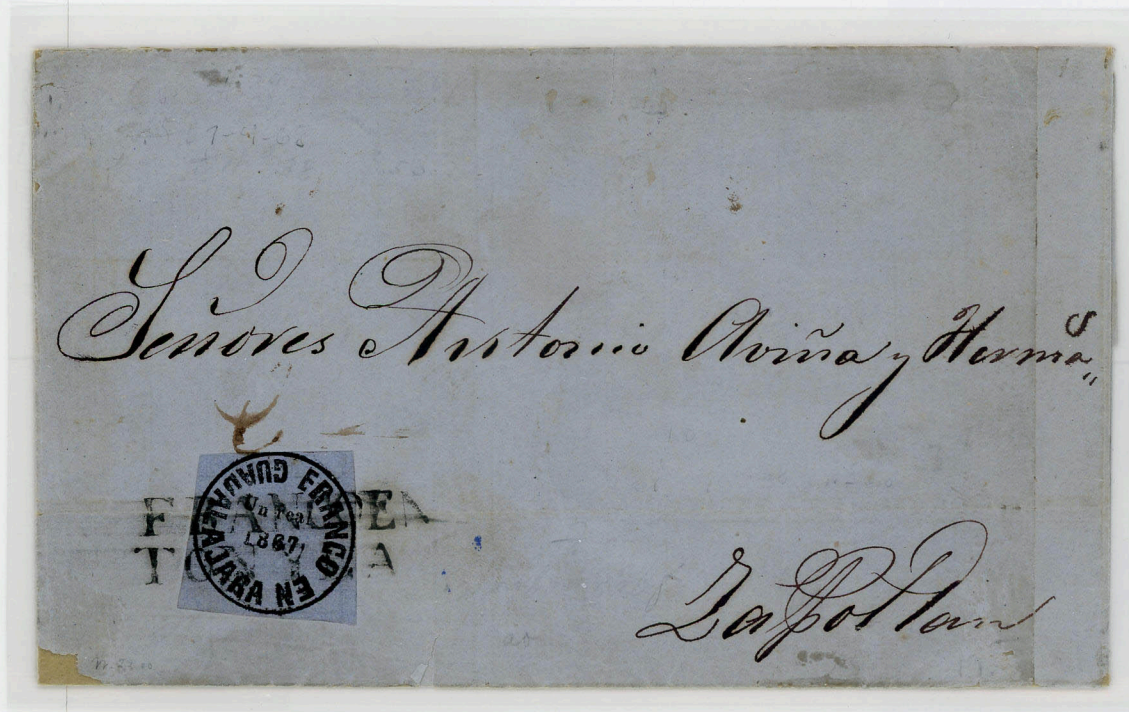 Señores Antonio Aviña y Herma,,
FRANCO EN
TO
FRANCO EN GUADALAJARA
Un real
1867
Zapotlan